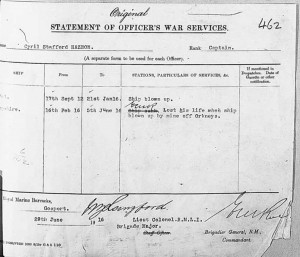 Original
462
STATEMENT OF OFFICER'S WAR SERVICES.
Cyril Shafford HAZEON. Rank Captain.
(A separate form to be used for each Officer).
SHIP From To STATIONS, PARTICULARS OF SERVICES, &c. If mentioned in Despatches. Date of Gazette or other notification.
17th Sept 12 21st Jan16. Ship blown up.
16th Feb 16 5th June 16 Lost his life when ship
blown up by mine off Orkneys.
Royal Marine Barracks,
Gosport.
29th June 1916 Lieut Colonel.R.M.L.I.
Brigade Major. Brigadier General, R.M.
Commandant.